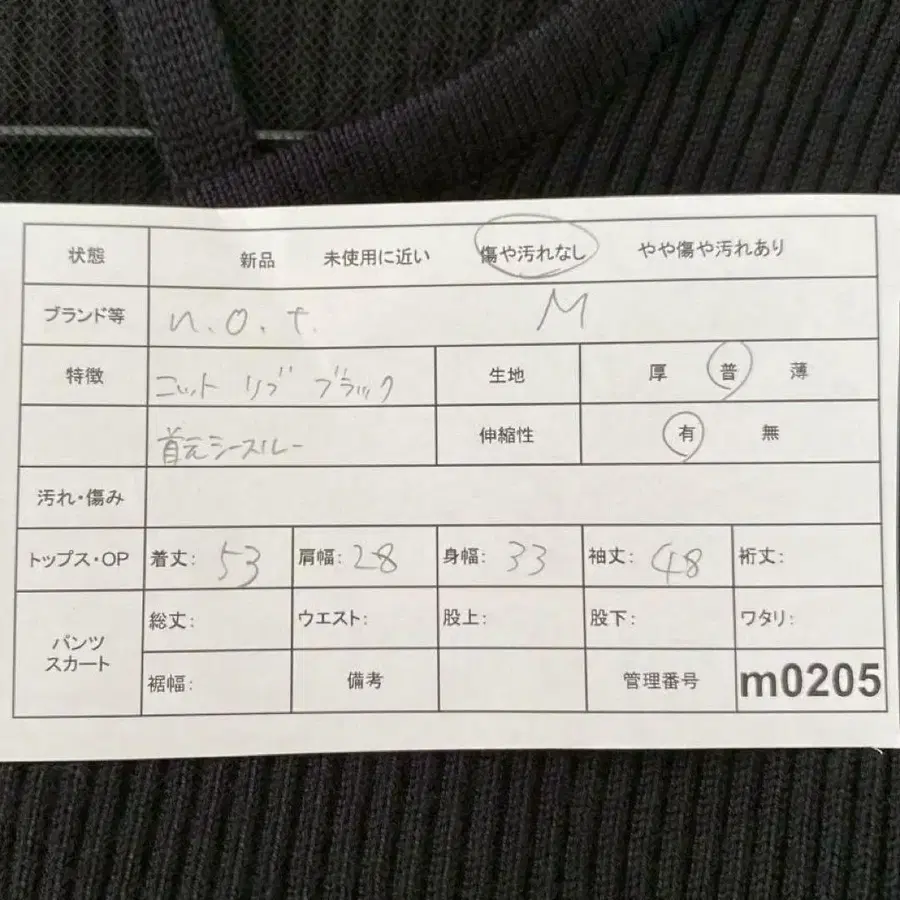 状態 新品 未使用に近い 傷や汚れなし やや傷や汚れあり
ブランド等 n.o.t. M
特徴 ニット リブ ブラック 生地 厚 普 薄
首元シースルー 伸縮性 有 無
汚れ・傷み
トップス・OP 着丈: 53 肩幅: 28 身幅: 33 袖丈: 48 裄丈:
パンツ スカート 総丈: ウエスト: 股上: 股下: ワタリ:
裾幅: 備考 管理番号 m0205